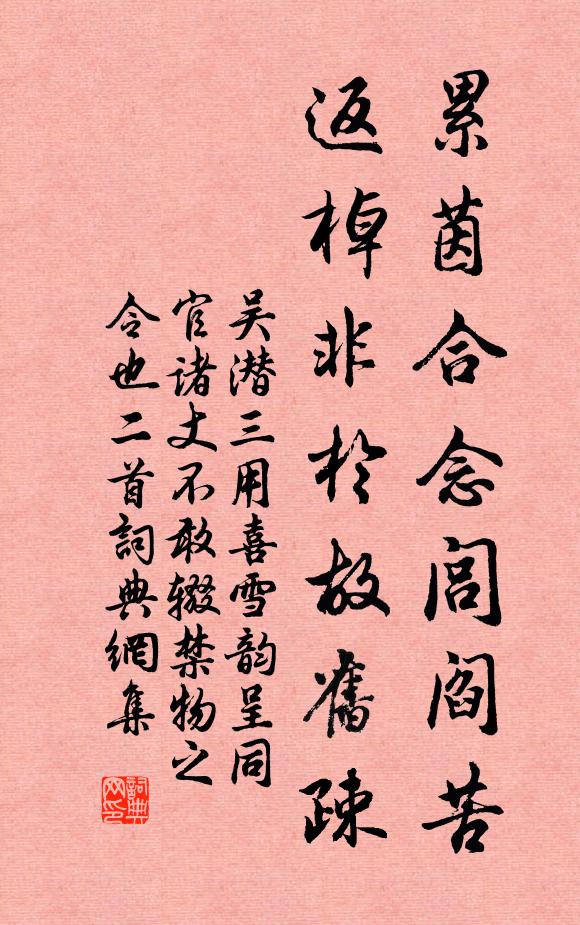 累茵合念闾阎苦
返棹非於故舊疎
吴潜三用喜雪韵呈同
官诸丈不敢辍禁物之
令也二首詞典網集
詞典網印